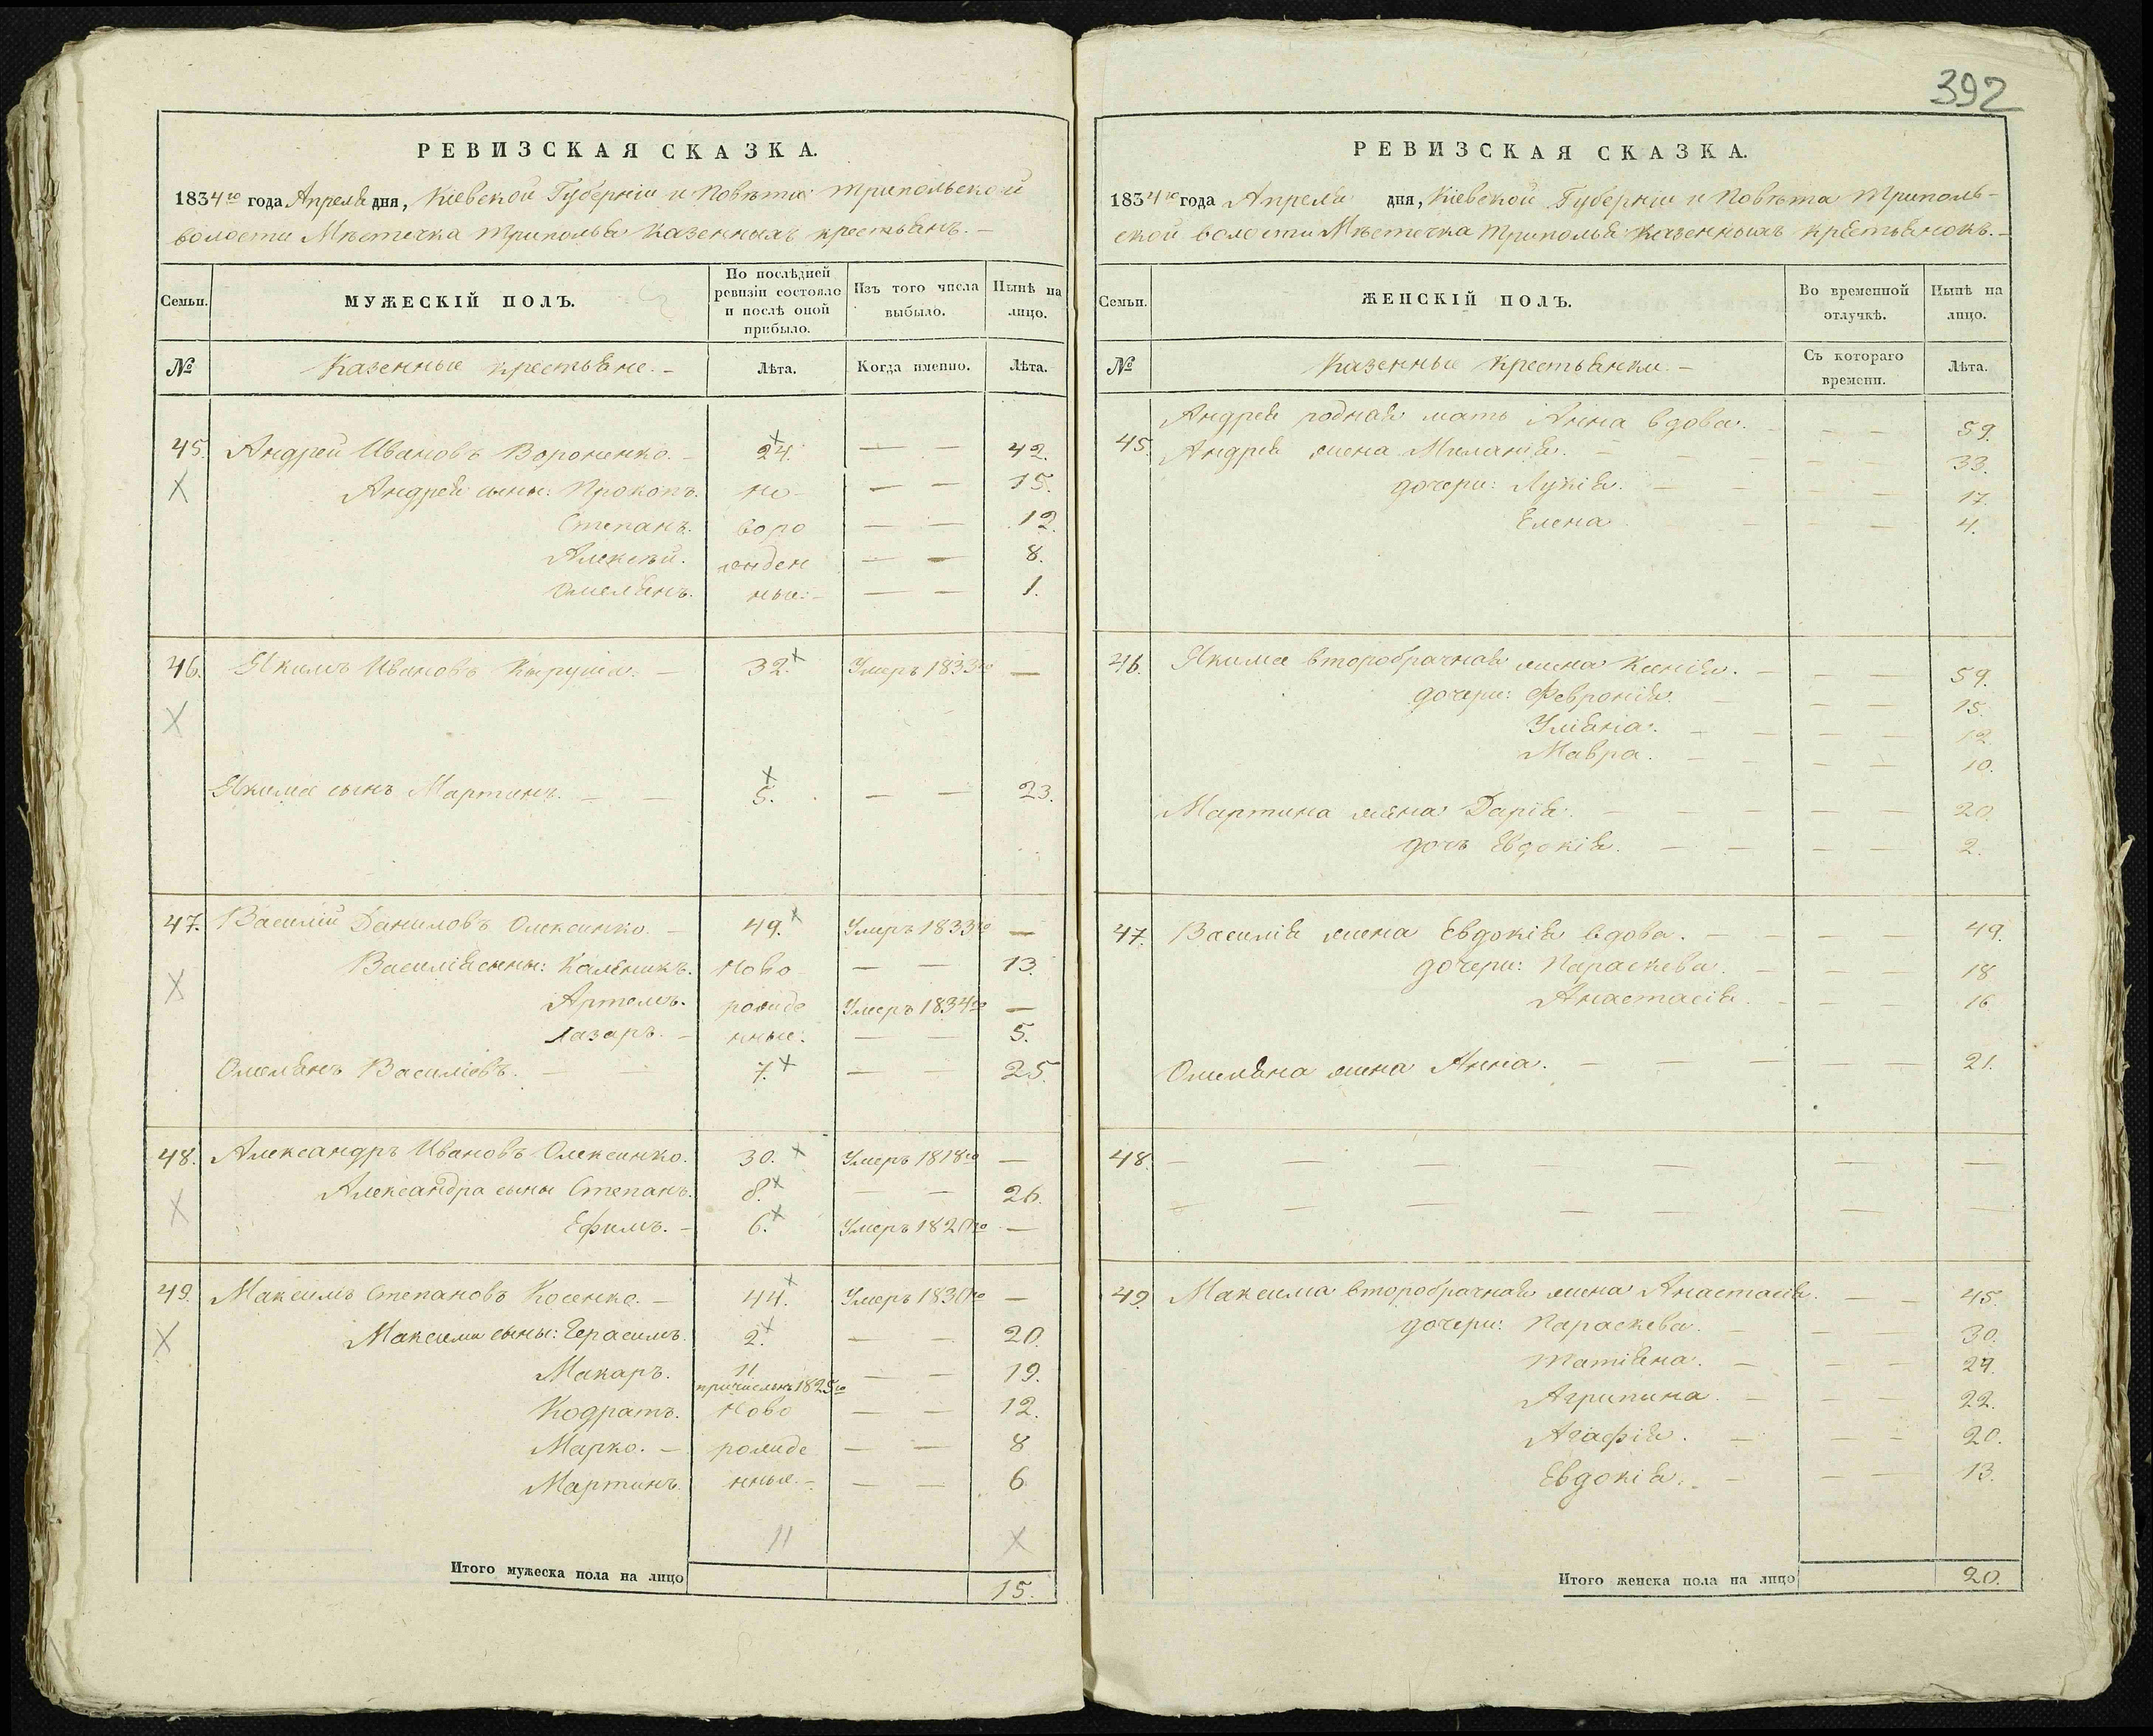 392
РЕВИЗСКАЯ СКАЗКА.
1834го года Апреля дня, Кіевской Губерніи и Повѣта Трипольской
волости Мѣстечка Триполья Казенныхъ крестьянъ. —
Семьи.
МУЖЕСКІЙ ПОЛЪ.
По послѣдней ревизіи состояло и послѣ оной прибыло.
Изъ того числа выбыло.
Нынѣ на лицо.
№
Казенные крестьяне. —
Лѣта.
Когда именно.
Лѣта.
45. Андрей Ивановъ Вороненко. — 24. — — 42.
Андрея сыны: Прокопъ. но- — — 15.
Степанъ. воро — — 12.
Алексѣй. жден — — 8.
Омелянъ. ные: — — — 1.
46. Якимъ Ивановъ — 32. Умеръ 1833го —
Якима сынъ Мартинъ. — — 5. — — 23.
47. Василій Даниловъ Олексенко. — 49. Умеръ 1833го —
Василія сыны: Калѣникъ. Ново — — 13.
Артемъ. рожде Умеръ 1834го —
Лазаръ. — нные: — — 5.
Омелянъ Василіевъ. — — 7. — — 25.
48. Александръ Ивановъ Олексенко. 30. Умеръ 1818го —
Александра сыны Степанъ. 8. — — 26.
Ефимъ. — 6. Умеръ 1820го —
49. Максимъ Степановъ Косенко. — 44. Умеръ 1830го —
Максима сыны: Герасимъ. 2. — — 20.
Макаръ. 11 причисленъ 1825го — — 19.
Кодратъ. Ново — — 12.
Марко. — рожде — — 8
Мартинъ. нные. — — — 6
11
Итого мужеска пола на лицо 15.
РЕВИЗСКАЯ СКАЗКА.
1834го года Апреля дня, Кіевской Губерніи и Повѣта Триполь-
ской волости Мѣстечка Триполья Казенныхъ крестьянокъ. —
Семьи.
ЖЕНСКІЙ ПОЛЪ.
Во временной отлучкѣ.
Нынѣ на лицо.
№
Казенные Крестьянки. —
Съ котораго времени.
Лѣта.
Андрея родная мать Анна вдова. — — 59.
45. Андрея жена Миланія. — — — 33.
дочери: Лукія. — — — 17.
Елена — — 4.
46. Якима второбрачная жена Ксенія. — — — 59.
дочери: Февронія. — — — 15.
Уліяна. — — — — 12.
Мавра. — — — — 10.
Мартина жена Дарія. — — — — — 20.
дочь Евдокія. — — — — 2.
47. Василія жена Евдокія вдова. — — — 49.
дочери: Параскева. — — — 18
Анастасія. — — — 16
Омеляна жена Анна. — — — — — 21.
48. — — — — — — — —
— — — — — — — —
49. Максима второбрачная жена Анастасія. — — 45.
дочери: Параскева. — — — 30.
Татіяна. — — — 24.
Агрипина. — — — 22.
Агафія. — — — 20.
Евдокія. — — — 13.
Итого женска пола на лицо 20.